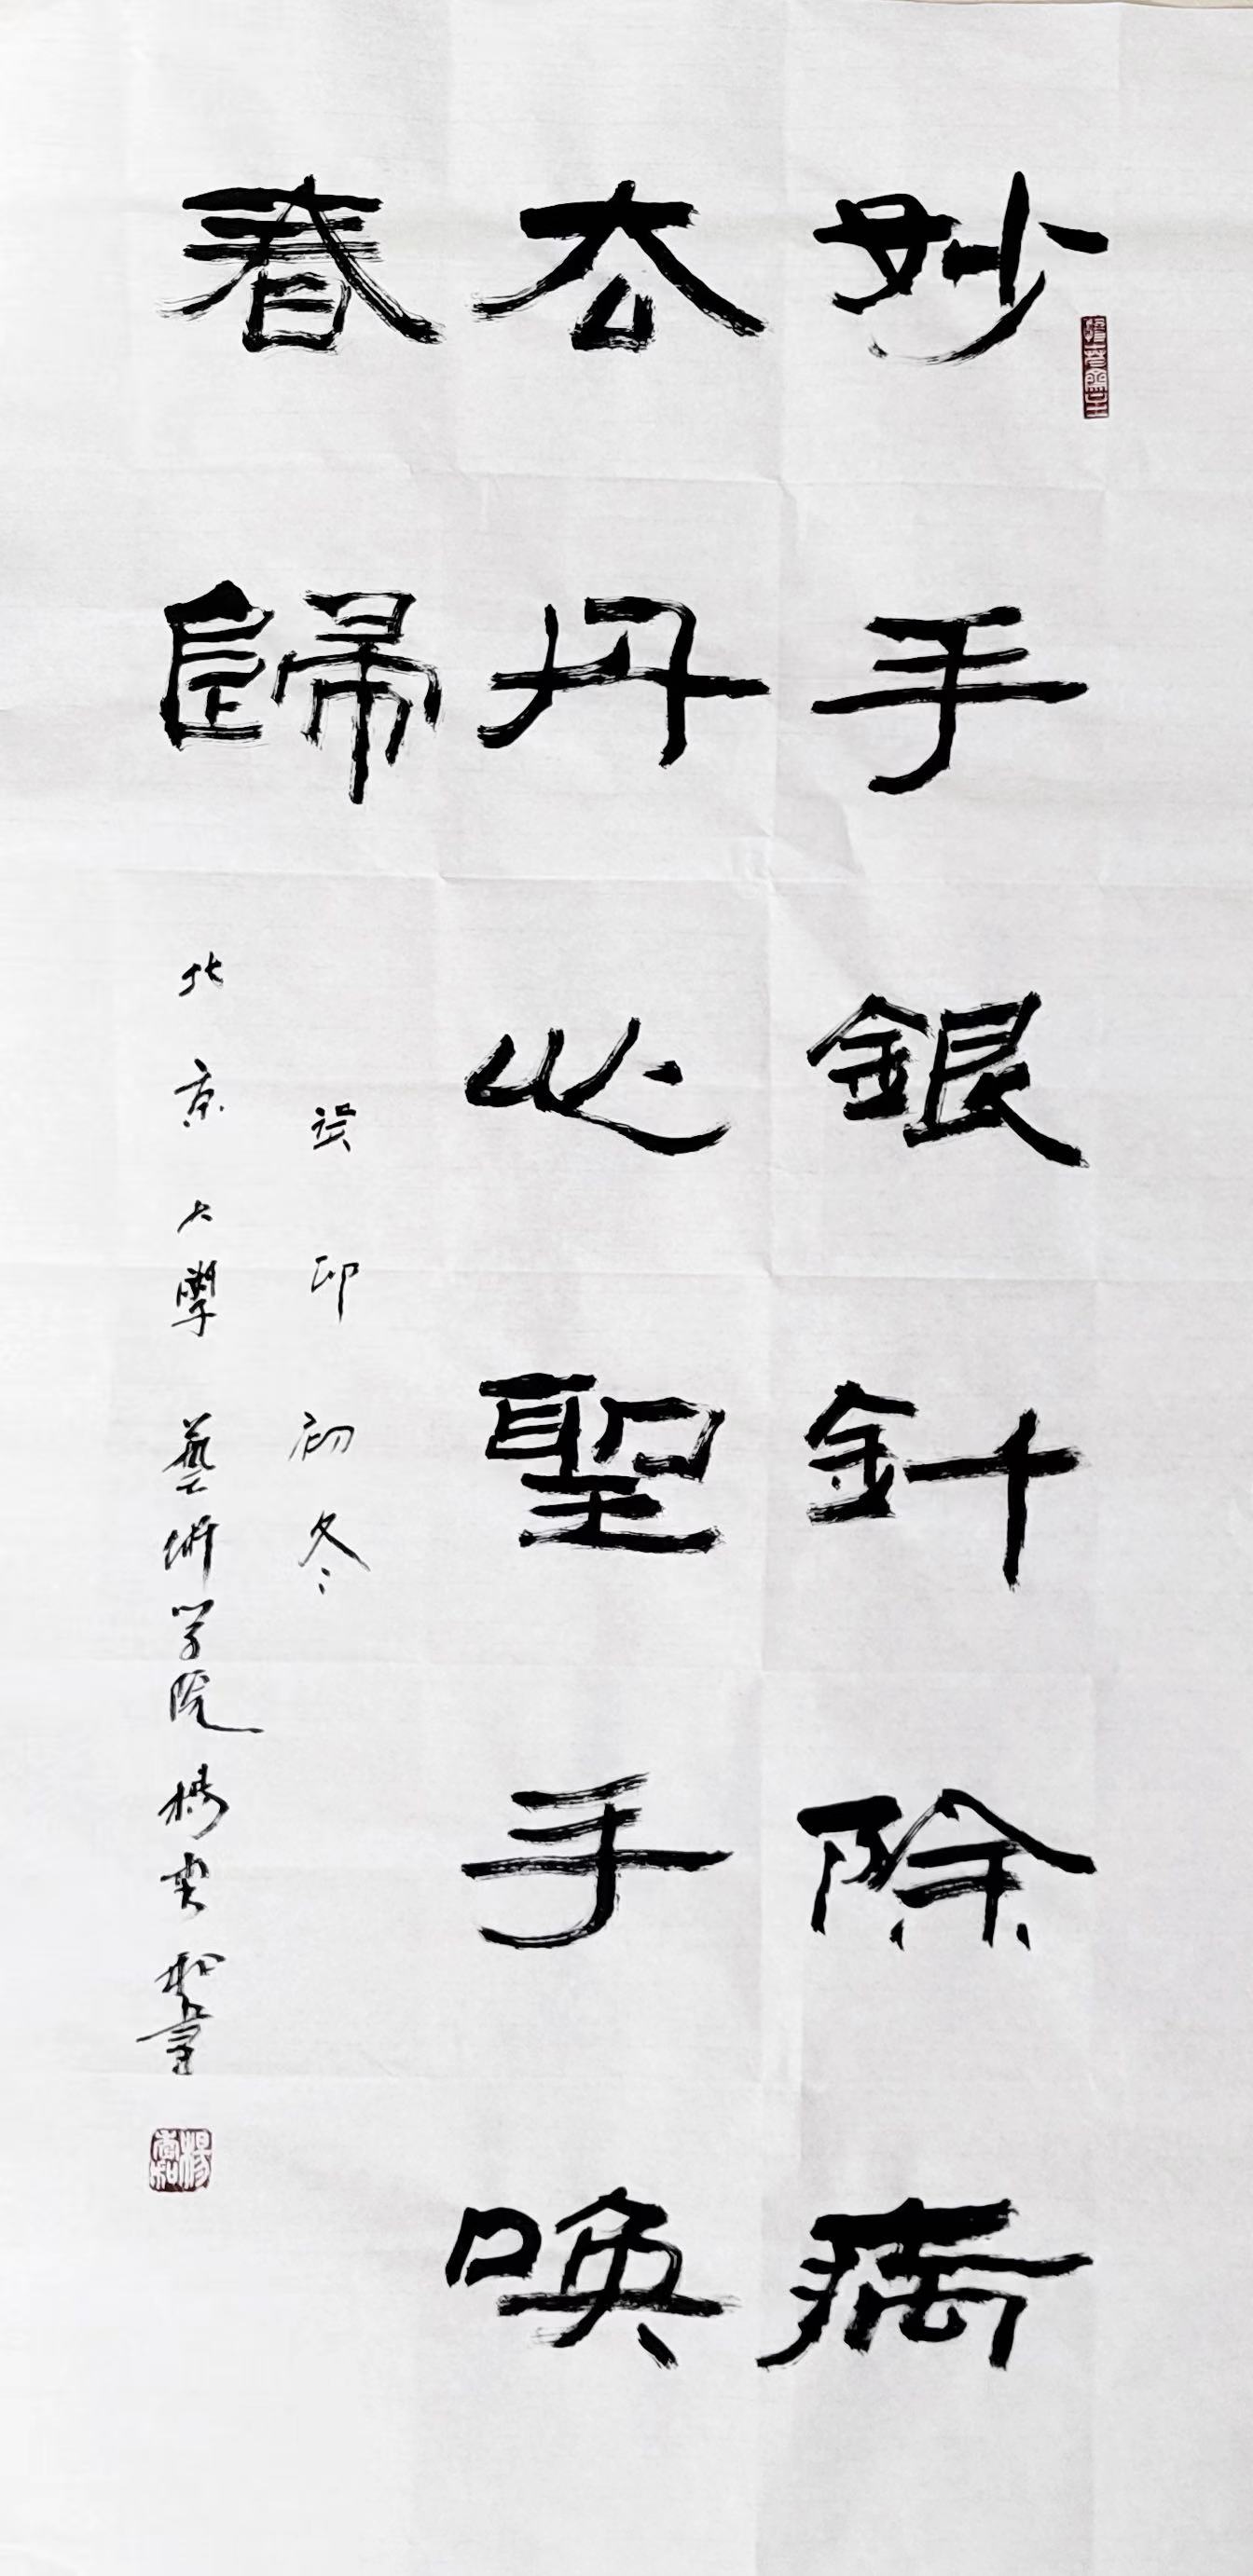 妙手銀針除病
去丹心聖手喚
春歸
癸卯初冬
北京大學藝術学院楊